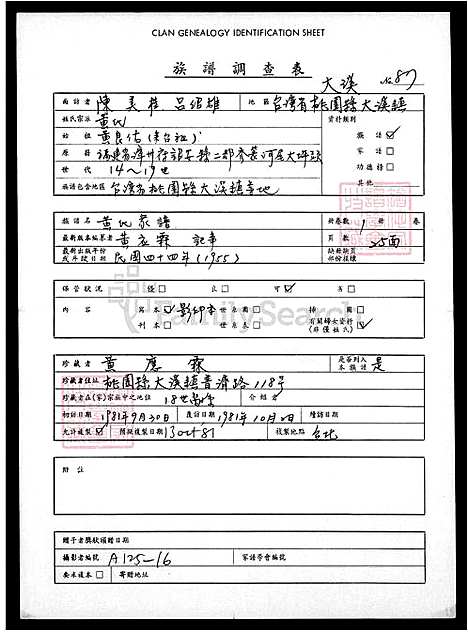 CLAN GENEALOGY IDENTIFICATION SHEET
族譜調查表
大溪 No 87
面訪者 陳美桂 呂紹雄 地區 台灣省桃園縣大溪鎮
姓氏宗派 黃氏 資料類別
始祖 黃良佑(來台祖) 族譜 ☑
原籍 福建省漳州府詔安縣二都 家譜 □
世代 14~19世 功德榜 □
族譜包含地區 台灣省桃園縣大溪鎮等地 其他
族譜名 黃氏家譜 冊卷數 1 冊 卷
最新版本編纂者 黃應霖 記事 頁數 25面
最新出版年份或年限日期 民國四十四年(1955) 缺冊缺頁部份栓樓
保管狀況 優 □ 良 □ 可 ☑ 否 □
內容 寫本 ☑ 影印本 世系表 □ 插圖 □
刊本 □ 世系圖 □ 有關婦女資料(非僅姓氏) ☑
珍藏者 黃應霖 是否列入本族譜 是
珍藏者住址 桃園縣大溪鎮普濟路118號
珍藏者在(家)宗族中之地位 18世裔孫 介紹者
初訪日期 1981年9月30日 復訪日期 1981年10月2日 續訪日期
允許複製 ☑ 預擬複製日期 13 Oct 81 複製地點 台北
附註
贈予者獎狀頒贈日期
攝影者編號 A125-16 家譜學會編號
要求複本 □ 寄贈地址
FamilySearch